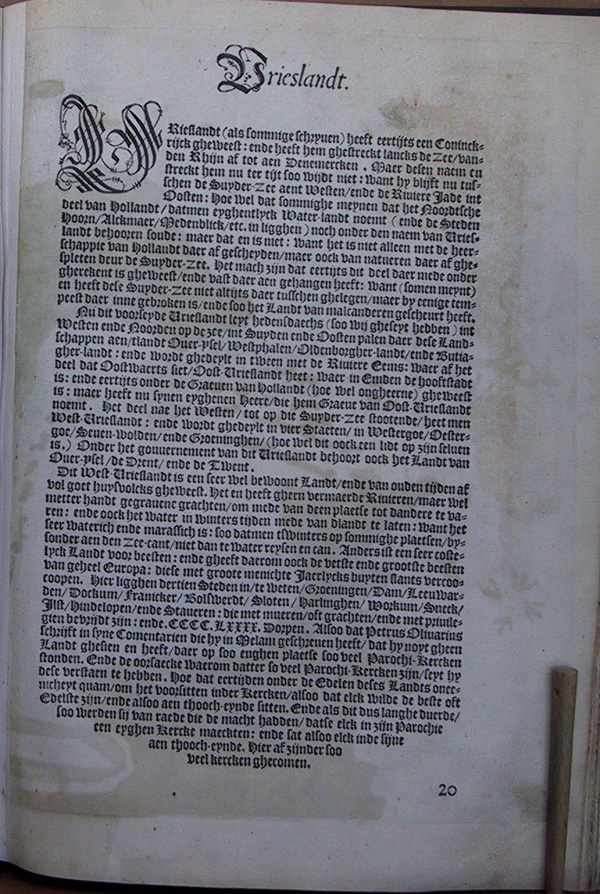 Vrieslandt.
VRieslandt (als sommige schryven) heeft eertijts een Coninck-
rijck gheweest: ende heeft hem ghestreckt lancks de Zee/van-
den Rhijn af tot aen Denemercken. Maer desen naem en
streckt hem nu ter tijt soo wijdt niet: want hy blijft nu tus-
schen de Suyder-Zee aent Westen/ende de Riviere Jade int
Oosten: Hoe wel dat sommighe meynen dat het Noordtsche
deel van Hollandt/datmen eyghentlyck Water-landt noemt (ende de Steden
Hoorn/Alckmaer/Medenblick/etc. in ligghen) noch onder den naem van Vries-
landt behooren soude: maer dat en is niet: want het is niet alleen met de heer-
schappie van Hollandt daer af gescheyden/maer oock van natueren daer af ghe-
spleten deur de Suyder-Zee. Het mach zijn dat eertijts dit deel daer mede onder
gherekent is gheweest/ende vast daer aen gehangen heeft: want (somen meynt)
en heeft dese Suyder-Zee niet altijts daer tusschen ghelegen/maer by eenige tem-
peest daer inne gebroken is/ende soo het Landt van malcanderen gescheurt heeft.
Nu dit voorseyde Vrieslandt leyt hedensdaechs (soo wij gheseyt hebben) int
Westen ende Noorden op de zee/int Suyden ende Oosten palen daer dese Land-
schappen aen/tlandt Over-ysel/Westphalen/Oldenborgher-landt/ende Butia-
gher-landt: ende wordt ghedeylt in tween met de Riviere Eems: waer af het
deel dat Oostwaerts siet/Oost-Vrieslandt heet: waer in Emden de hooftstadt
is: ende eertijts onder de Graeven van Hollandt (hoe wel ongheerne) gheweest
is: maer heeft nu synen eyghenen Heere/die hem Graeve van Oost-Vrieslandt
noemt. Het deel nae het Westen/tot op die Suyder-Zee stootende/heet men
West-Vrieslandt: ende wordt ghedeylt in vier Staeten/in Westergoe/Oester-
goe/Seven-wolden/ende Groeninghen/(hoe wel dit oock een lidt op zijn selven
is.) Onder het gouvernement van dit Vrieslandt behoort oock het Landt van
Over-ysel/de Drent/ende de Twent.
Dit West-Vrieslandt is een seer wel bewoont Landt/ende van ouden tijden af
vol goet huysvolcks gheweest. Het en heeft gheen vermaerde Rivieren/maer wel
metter handt gegravene grachten/om mede van deen plaetse tot dandere te va-
ren: ende oock het water in winters tijden mede van dlandt te laten: want het
seer waterich ende marassich is: soo datmen tswinters op sommighe plaetsen/by-
sonder aen den Zee-cant/niet dan te water reysen en can. Anders ist een seer coste-
lyck Landt voor beesten: ende gheeft daerom oock de vetste ende grootste beesten
van geheel Europa: diese met groote menichte Jaerlycks buyten slants vercoo-
coopen. Hier ligghen dertien Steden in/te weten/Groeningen/Dam/Leeuwar-
den/Dockum/Franicker/Bolswerdt/Sloten/Harlinghen/Workum/Sneck/
Jlst/Hindelopen/ende Staveren: die met mueren/oft grachten/ende met privile-
gien bevrijdt zijn: ende. CCCC. LXXXX. Dorpen. Alsoo dat Petrus Olivarius
schrijft in syne Comentarien die hy in Melam geschreven heeft/dat hy noyt gheen
Landt ghesien en heeft/daer op soo enghen plaetse soo veel Parochi-Kercken
stonden. Ende de oorsaecke waerom datter so veel Parochi-Kercken zijn/seyt hy
dese verstaen te hebben. Hoe dat eertijden onder de Edelen deses Landts onee-
nicheyt quam/om het voorsitten inder Kercken/alsoo dat elck wilde de beste oft
Edelste zijn/ende alsoo aen thooch-eynde sitten. Ende als dit dus langhe duerde/
soo werden sij van raede die de macht hadden/datse elck in zijn Parochie
een eyghen Kercke maeckten: ende sat alsoo elck inde sijne
aen thooch-eynde. Hier af zijnder soo
veel kercken ghecomen.
20